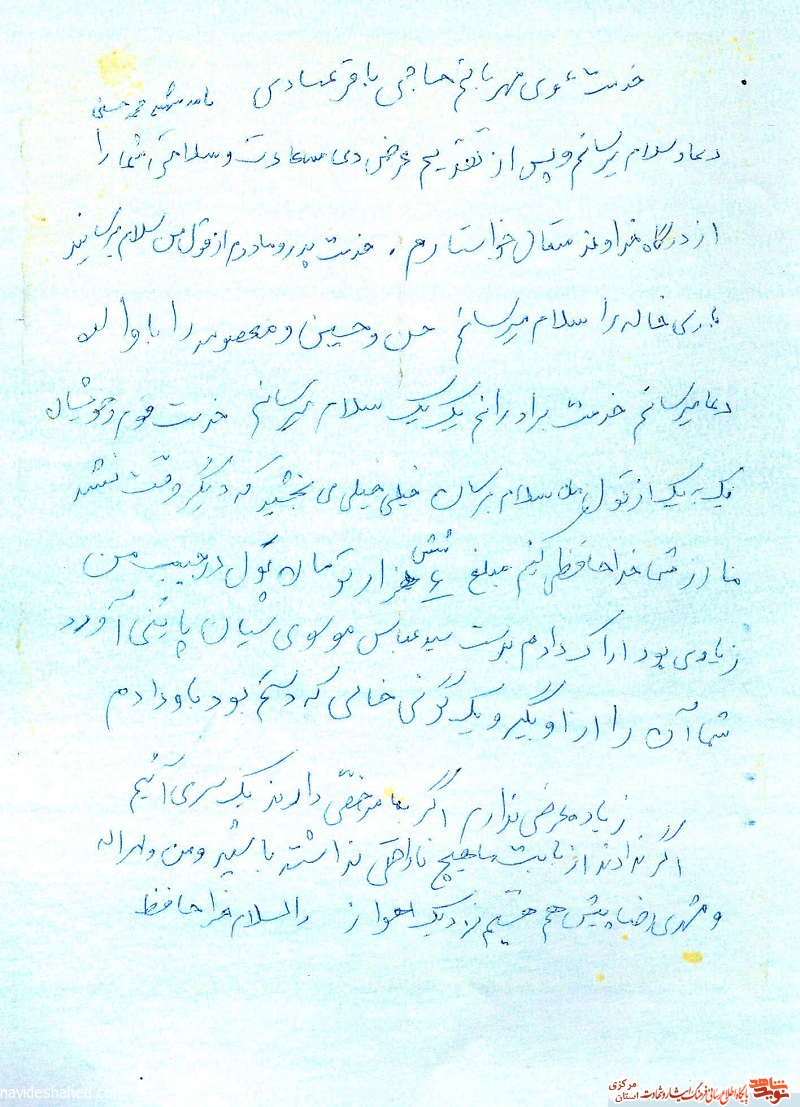 خدمت عموی مهربانم حاجی باقر عبادی
نامه شهید محمد حسنی
دعا و سلام میرسانم و پس از تقدیم عرض دعا سعادت و سلامتی شما را
از درگاه خداوند متعال خواستارم . خدمت پدر و مادرم از قول من سلام برسانید
باری خاله را سلام میرسانم حسن و حسین و معصومه را با والده
دعا میرسانم خدمت برادرانم یک یک سلام میرسانم خدمت قوم و خویشان
یک یک از قول من سلام برسان خیلی خیلی می بخشید که دیگر وقت نشد
تا از شما خداحافظی کنم مبلغ ۶ شش هزار تومان پول در جیب من
زیادی بود اراک دادم بدست سید عباس موسوی سیان پائینی آورد
شما آن را از او بگیر و یک گونی خالی که دستم بود باو دادم
زیاده عرضی ندارم اگر بما مرخصی دادند یک سری آئیم
اگر ندادند از بابت ما هیچ ناراحتی نداشته باشید و من و
و مهدی رضا پیش هم هستیم نزدیک اهواز والسلام خداحافظ
navideshahed.com
نوید شاهد
پایگاه اطلاع رسانی فرهنگ ایثار و شهادت
استان مرکزی